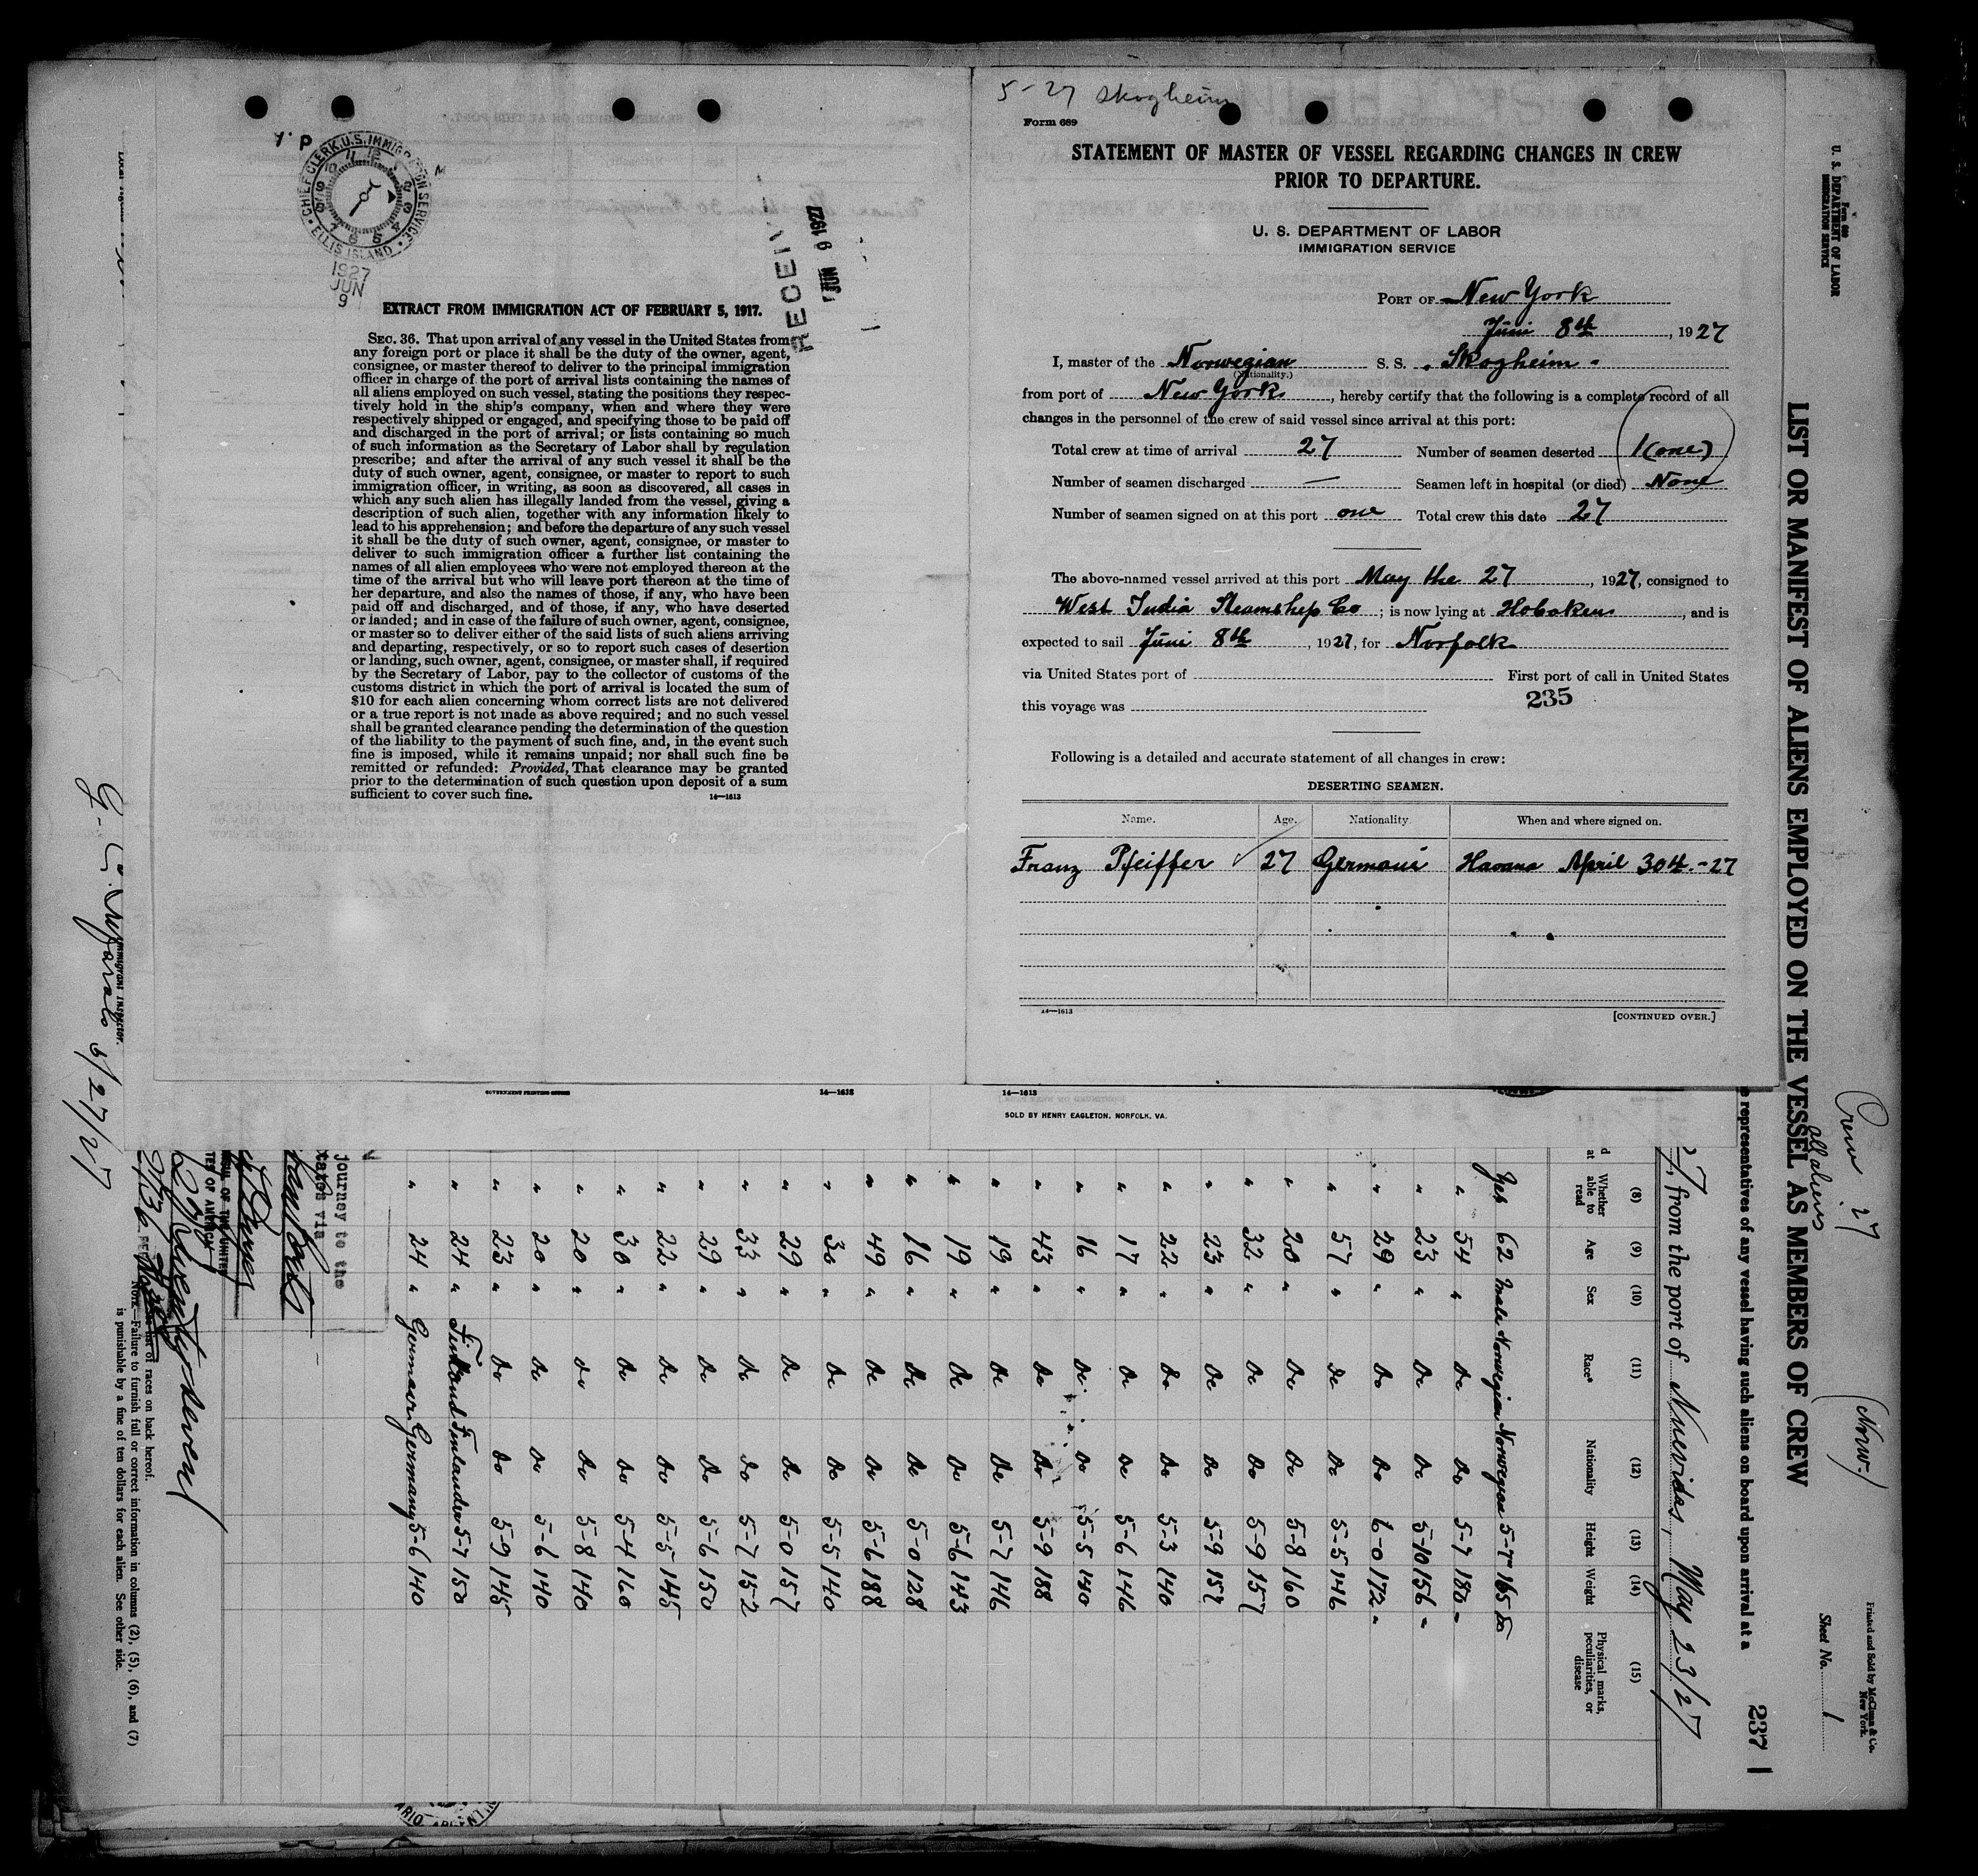 5-27 Skogheim
Form 689
STATEMENT OF MASTER OF VESSEL REGARDING CHANGES IN CREW
PRIOR TO DEPARTURE.
U. S. DEPARTMENT OF LABOR
IMMIGRATION SERVICE
PORT OF New York
Juni 8th, 1927
I, master of the Norwegian S. S. "Skogheim"
(Nationality.)
from port of New York, hereby certify that the following is a complete record of all
changes in the personnel of the crew of said vessel since arrival at this port:
Total crew at time of arrival 27 Number of seamen deserted 1 (one)
Number of seamen discharged — Seamen left in hospital (or died) None
Number of seamen signed on at this port one Total crew this date 27
The above-named vessel arrived at this port May the 27, 1927, consigned to
West India Steamship Co; is now lying at Hoboken, and is
expected to sail Juni 8th, 1927, for Norfolk
via United States port of First port of call in United States
235
this voyage was
Following is a detailed and accurate statement of all changes in crew:
DESERTING SEAMEN.
Name. Age. Nationality. When and where signed on.
Franz Pfeiffer 27 Germani Havana April 30th -27
14—1613
[CONTINUED OVER.]
CHIEF CLERK, U.S. IMMIGRATION SERVICE
ELLIS ISLAND
1927
JUN
9
JUN 9 1927
EXTRACT FROM IMMIGRATION ACT OF FEBRUARY 5, 1917.
SEC. 36. That upon arrival of any vessel in the United States from
any foreign port or place it shall be the duty of the owner, agent,
consignee, or master thereof to deliver to the principal immigration
officer in charge of the port of arrival lists containing the names of
all aliens employed on such vessel, stating the positions they respec-
tively hold in the ship's company, when and where they were
respectively shipped or engaged, and specifying those to be paid off
and discharged in the port of arrival; or lists containing so much
of such information as the Secretary of Labor shall by regulation
prescribe; and after the arrival of any such vessel it shall be the
duty of such owner, agent, consignee, or master to report to such
immigration officer, in writing, as soon as discovered, all cases in
which any such alien has illegally landed from the vessel, giving a
description of such alien, together with any information likely to
lead to his apprehension; and before the departure of any such vessel
it shall be the duty of such owner, agent, consignee, or master to
deliver to such immigration officer a further list containing the
names of all alien employees who were not employed thereon at the
time of the arrival but who will leave port thereon at the time of
her departure, and also the names of those, if any, who have been
paid off and discharged, and of those, if any, who have deserted
or landed; and in case of the failure of such owner, agent, consignee,
or master so to deliver either of the said lists of such aliens arriving
and departing, respectively, or so to report such cases of desertion
or landing, such owner, agent, consignee, or master shall, if required
by the Secretary of Labor, pay to the collector of customs of the
customs district in which the port of arrival is located the sum of
$10 for each alien concerning whom correct lists are not delivered
or a true report is not made as above required; and no such vessel
shall be granted clearance pending the determination of the question
of the liability to the payment of such fine, and, in the event such
fine is imposed, while it remains unpaid; nor shall such fine be
remitted or refunded: Provided, That clearance may be granted
prior to the determination of such question upon deposit of a sum
sufficient to cover such fine.
14—1613
GOVERNMENT PRINTING OFFICE
14—1613
SOLD BY HENRY EAGLETON, NORFOLK, VA.
Form 689
U. S. DEPARTMENT OF LABOR
IMMIGRATION SERVICE
Crew 27 (Norw.)
all aliens
Printed and Sold by McClunn & Co.
New York.
Sheet No. 1
LIST OR MANIFEST OF ALIENS EMPLOYED ON THE VESSEL AS MEMBERS OF CREW
237
representatives of any vessel having such aliens on board upon arrival at a
, from the port of Nuevitas, May 23/27
(8) (9) (10) (11) (12) (13) (14) (15)
Whether able to read Age Sex Race* Nationality Height Weight Physical marks, peculiarities, or disease
Yes 62 Male Norwegian Norwegian 5-7 165
" 54 " Do Do 5-7 180
" 23 " Do Do 5-10 156
" 29 " Do Do 6-0 172
" 57 " Do Do 5-5 146
" 20 " Do Do 5-8 160
" 32 " Do Do 5-9 157
" 23 " Do Do 5-9 157
" 22 " Do Do 5-3 140
" 17 " Do Do 5-6 146
" 16 " Do Do 5-5 140
" 43 " Do Do 5-9 188
" 19 " Do Do 5-7 146
" 19 " Do Do 5-6 143
" 16 " Do Do 5-0 128
" 49 " Do Do 5-6 188
" 30 " Do Do 5-5 140
" 29 " Do Do 5-0 157
" 33 " Do Do 5-7 152
" 29 " Do Do 5-6 150
" 22 " Do Do 5-5 145
" 30 " Do Do 5-4 160
" 20 " Do Do 5-8 140
" 20 " Do Do 5-6 140
" 23 " Do Do 5-9 145
" 24 " Finland Finlander 5-7 150
" 24 " German Germany 5-6 140
journey to the
via
twenty seven
races on back hereof.
NOTE.—Failure to furnish full or correct information in columns (2), (5), (6), and (7)
is punishable by a fine of ten dollars for each alien. See other side.
Immigrant Inspector.
5/27/27